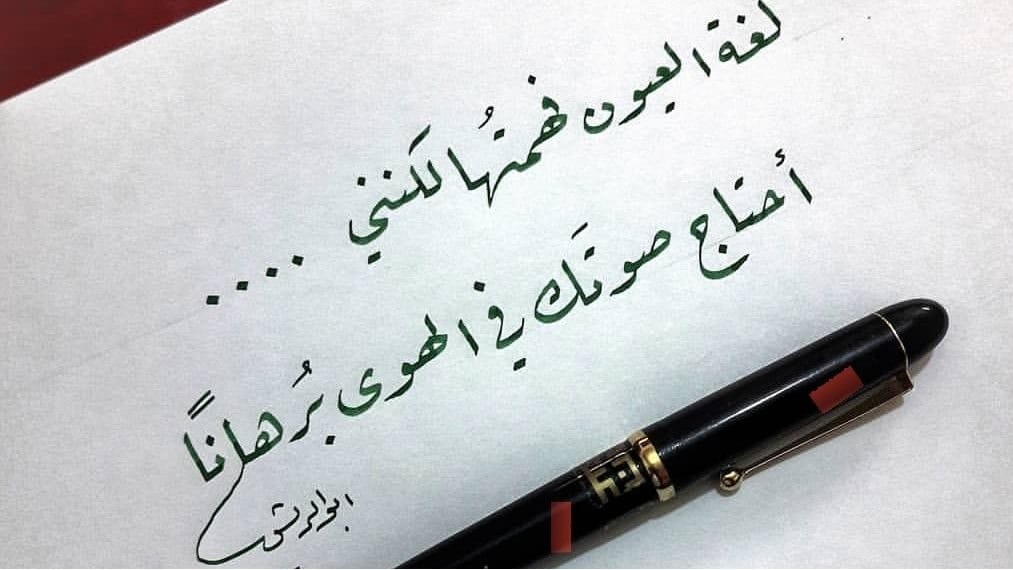 لغة العيون فهمتُها لكَنني ....
أحتاج صوتَك في الهوى بُرهاناً